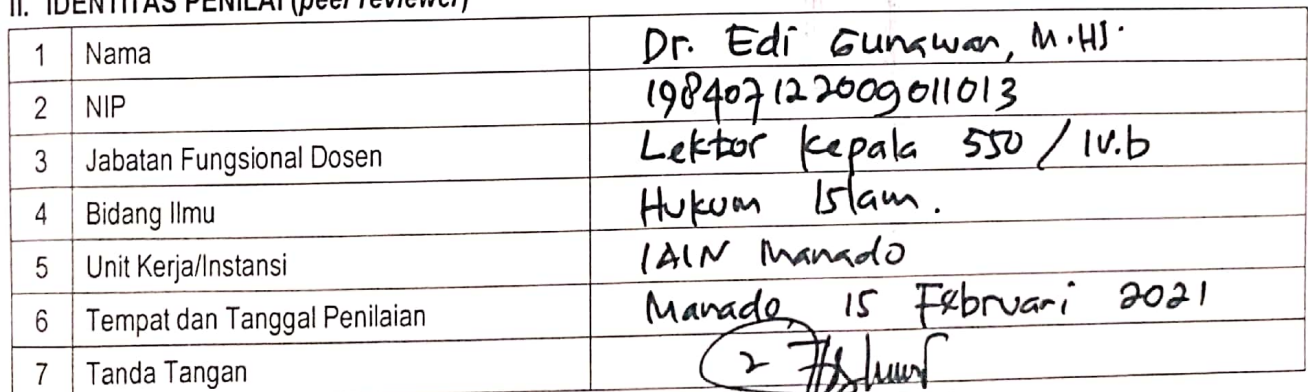 II. IDENTITAS PENILAI (peer reviewer)
1 Nama Dr. Edi Gunawan, M.HI.
2 NIP 198407122009011013
3 Jabatan Fungsional Dosen Lektor Kepala 550 / IV.b
4 Bidang Ilmu Hukum Islam.
5 Unit Kerja/Instansi IAIN Manado
6 Tempat dan Tanggal Penilaian Manado, 15 Februari 2021
7 Tanda Tangan